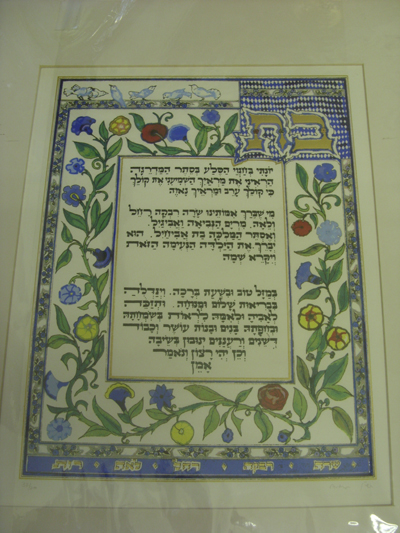 בת
יונתי בחגוי הסלע בסתר המדרגה
הראיני את מראיך השמיעני את קולך
כי קולך ערב ומראיך נאוה
מי שברך אמותינו שרה רבקה רחל
ולאה, מרים הנביאה ואביגיל
ואסתר המלכה בת אביחיל הוא
יברך את הילדה הנעימה הזאת
ויקרא שמה
במזל טוב ובשעת ברכה. ויגדלה
בבריאות שלום ומנוחה. ויזכה
לאביה ולאמה לראות בשמחתה
ובחופתה בנים ובנות עושר וכבוד
דשנים ורעננים ינובון בשיבה
וכן יהי רצון ונאמר
אמן